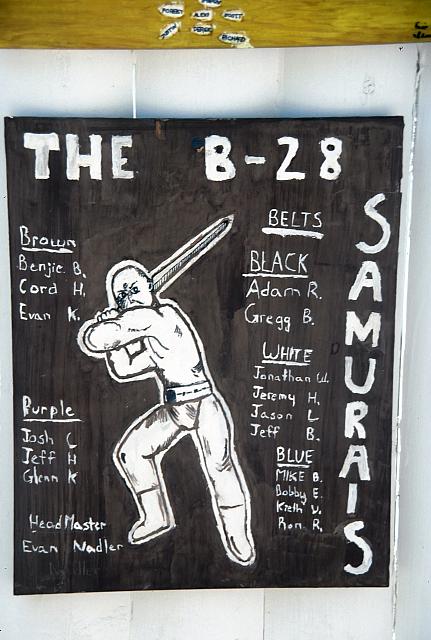 ALEX
SCOTT
DEREK
RICHARD
THE B-28
SAMURAIS
Brown
Benjie B.
Cord H.
Evan K.
Purple
Josh C
Jeff H
Glenn K
Head Master
Evan Nadler
BELTS
BLACK
Adam R.
Gregg B.
WHITE
Jonathan W.
Jeremy H.
Jason L
Jeff B.
BLUE
MIKE B.
Bobby E.
Keith V.
Ron R.